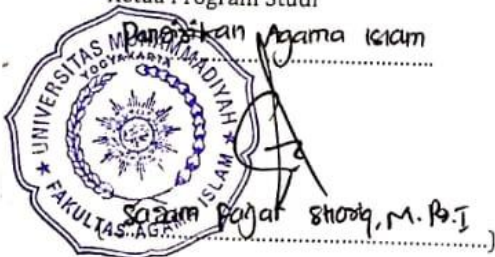 Ketua Program Studi
Pendidikan Agama Islam
UNIVERSITAS MUHAMMADIYAH
YOGYAKARTA
FAKULTAS AGAMA ISLAM
Sazam Fajar Shodiq, M.Pd.I